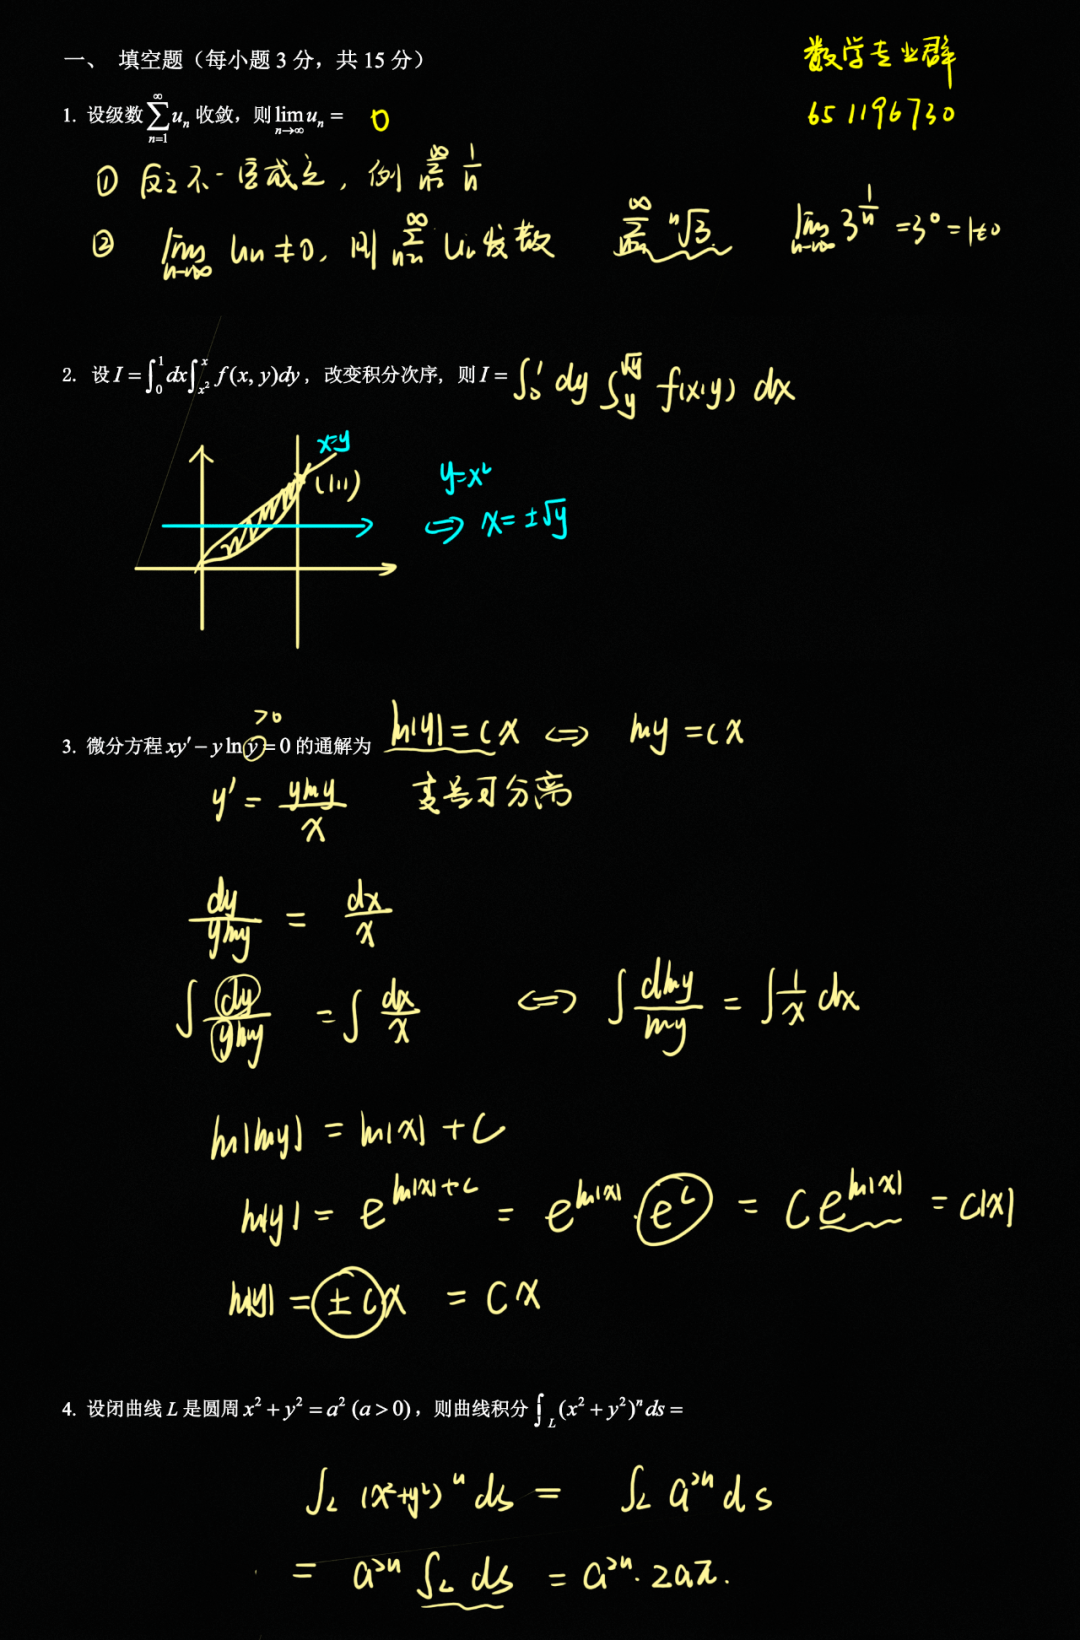 数学专业群
651196730
一、 填空题（每小题 3 分，共 15 分）
1. 设级数 ∑_{n=1}^{∞} u_n 收敛，则 lim_{n→∞} u_n = 0
① 反之不一定成立，例 ∑_{n=1}^{∞} 1/n
② lim_{n→∞} u_n ≠ 0，则 ∑_{n=1}^{∞} u_n 发散 ∑_{n=1}^{∞} ⁿ√3 lim_{n→∞} 3^{1/n} = 3⁰ = 1 ≠ 0
2. 设 I = ∫_0^1 dx ∫_{x²}^{x} f(x, y)dy，改变积分次序，则 I = ∫_0^1 dy ∫_y^{√y} f(x,y) dx
x=y
(1,1)
y=x²
⇔ x=±√y
>0
3. 微分方程 xy′ − y ln y = 0 的通解为 ln|y| = cx ⇔ lny = cx
y′ = ylny/x 变量可分离
dy/ylny = dx/x
∫ dy/ylny = ∫ dx/x ⇔ ∫ dlny/lny = ∫ 1/x dx
ln|lny| = ln|x| + C
ln|y| = e^{ln|x|+c} = e^{ln|x|} · e^c = Ce^{ln|x|} = C|x|
ln|y| = ±Cx = Cx
4. 设闭曲线 L 是圆周 x² + y² = a² (a > 0)，则曲线积分 ∫_L (x² + y²)ⁿ ds =
∫_L (x²+y²)ⁿ ds = ∫_L a²ⁿ ds
= a²ⁿ ∫_L ds = a²ⁿ · 2aπ.